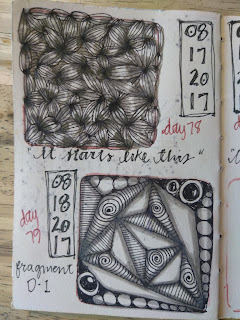 08
17
20
17
day 78
"It starts like this"
08
18
20
17
day
79
fragment
D-1